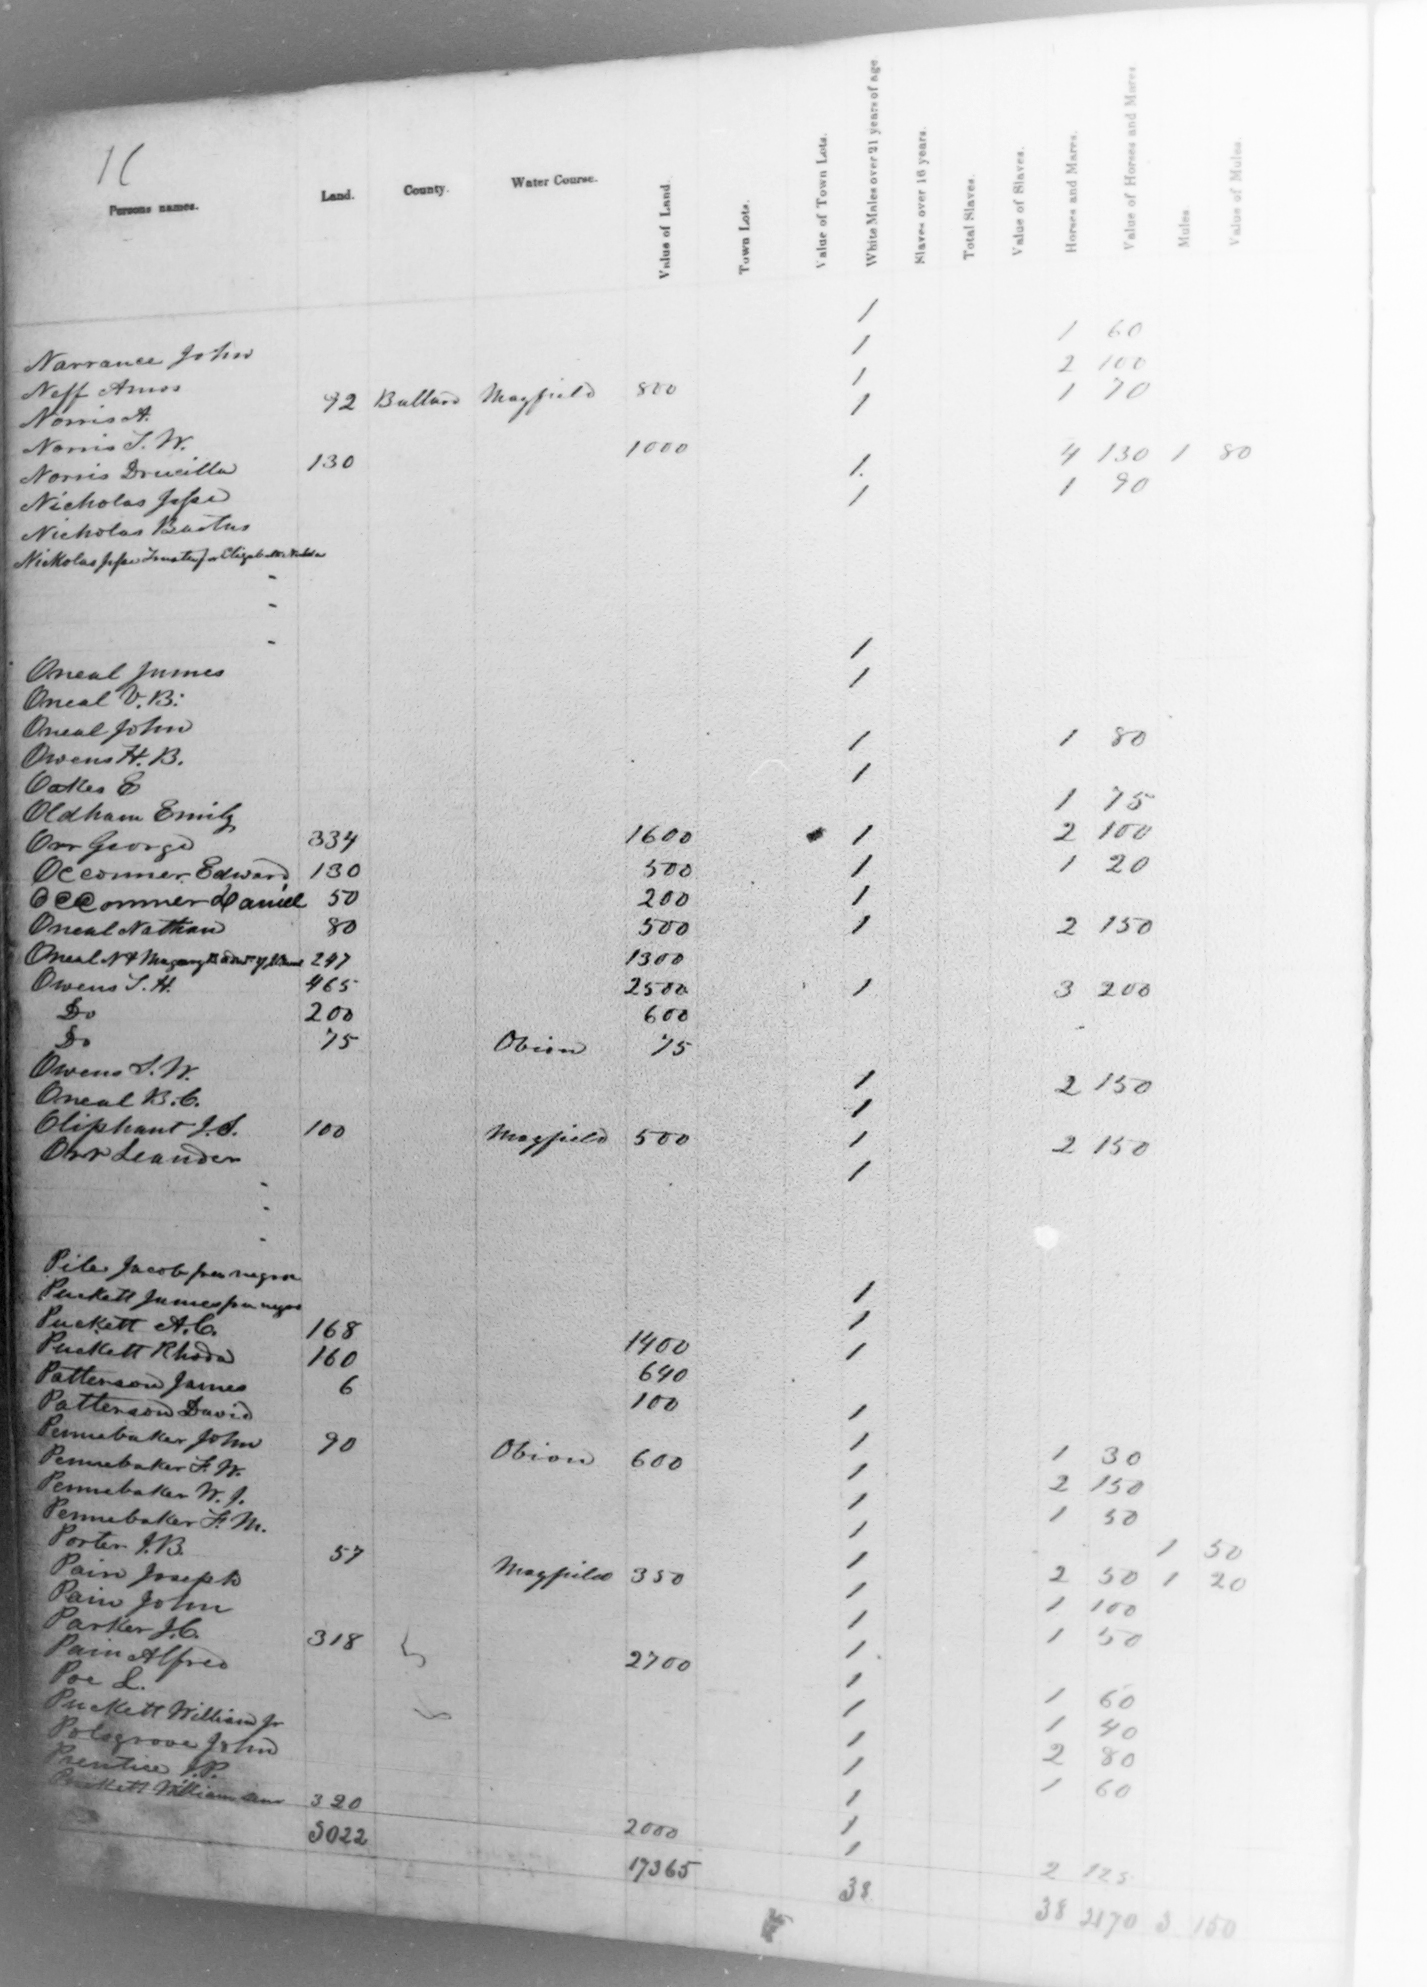 16
Persons names. Land. County. Water Course. Value of Land. Town Lots. Value of Town Lots. White Males over 21 years of age Slaves over 16 years. Total Slaves. Value of Slaves. Horses and Mares. Value of Horses and Mares Mules. Value of Mules.
Narrance John 1 1 60
Neff Amos 1 2 100
Norris A. 92 Ballard Mayfield 800 1 1 70
Norris T. W. 1
Norris Drucilla 130 1000 4 130 1 80
Nicholas Jesse 1 1 90
Nicholas Bastus 1
Nickolas Jesse Trustee for Elizabeth
Oneal James 1
Oneal V. B. 1
Oneal John
Owens H. B. 1 1 80
Oakes E 1
Oldham Emily 1 75
Orr George 334 1600 1 2 100
Occonner Edward 130 500 1 1 20
Occonner Daniel 50 200 1
Oneal Nathan 80 500 1 2 150
Oneal N & 247 1300
Owens T. H. 465 2500 1 3 200
Do 200 600
Do 75 Obion 75
Owens S. W. 1 2 150
Oneal B. C. 1
Oliphant J. S. 100 Mayfield 500 1 2 150
Orr Leander 1
Pile Jacob free negro
Puckett James free negro 1
Puckett A. C. 168 1400 1
Puckett Rhoda 160 640 1
Patterson James 6 100
Patterson David 1
Pennebaker John 90 Obion 600 1 1 30
Pennebaker F. W. 1 2 150
Pennebaker W. J. 1 1 50
Pennebaker F. M. 1
Porter J. B. 57 Mayfield 350 1 1 50
Pain Joseph 1 2 50 1 20
Pain John 1 1 100
Parker J. C. 318 2700 1 1 50
Pain Alfred 1
Poe L. 1 1 60
Puckett William Jr 1 1 40
Polsgrove John 1 2 80
Prentice J. P. 1 1 60
Puckett William Senr 320 2000 1 2 125
3022 17365 38 38 2170 3 150